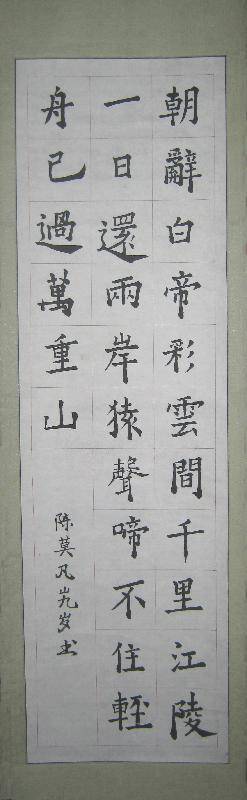 朝辭白帝彩雲間千里江陵
一日還兩岸猿聲啼不住輕
舟已過萬重山
陈莫凡九岁书